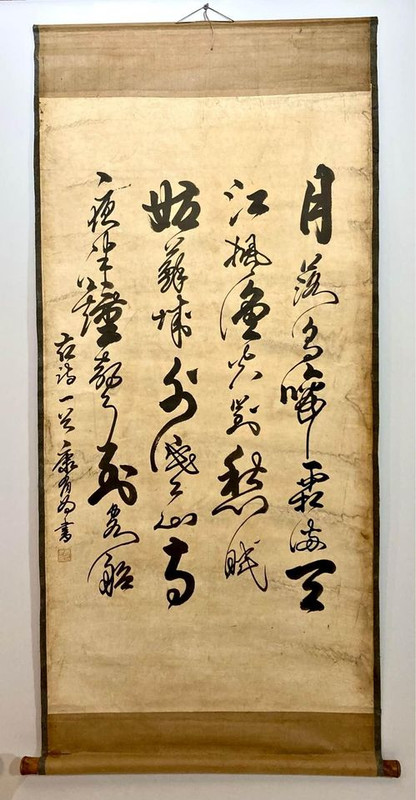 月落烏啼霜滿天
江楓漁火對愁眠
姑蘇城外寒山寺
夜半鐘聲到客船
詩一首 康有為書